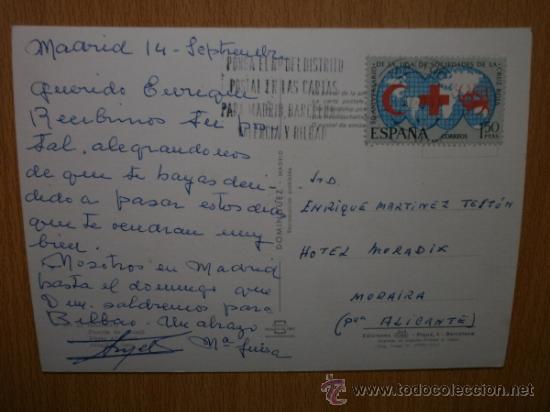 Madrid 14-Septiembre
Querido Enrique
Recibimos tu
tal, alegrandonos
de que te hayas deci-
dido a pasar estos dias
que te vendran muy
bien.
Nosotros en Madrid
hasta el domingo que
D.m. saldremos para
Bilbao. Un abrazo
Angel Mª Luisa
PONGA EL Nº DEL DISTRITO
POSTAL EN LAS CARTAS
PARA MADRID, BARCELONA
VALENCIA Y BILBAO
50 ANIVERSARIO DE LA LIGA DE SOCIEDADES DE LA CRUZ ROJA
ESPAÑA
CORREOS
1,50
PTAS
DOMINGUEZ - MADRID
Sr.D.
ENRIQUE MARTINEZ
HOTEL MORADIX
MORAIRA
(por ALICANTE)
todocoleccion
www.todocoleccion.net